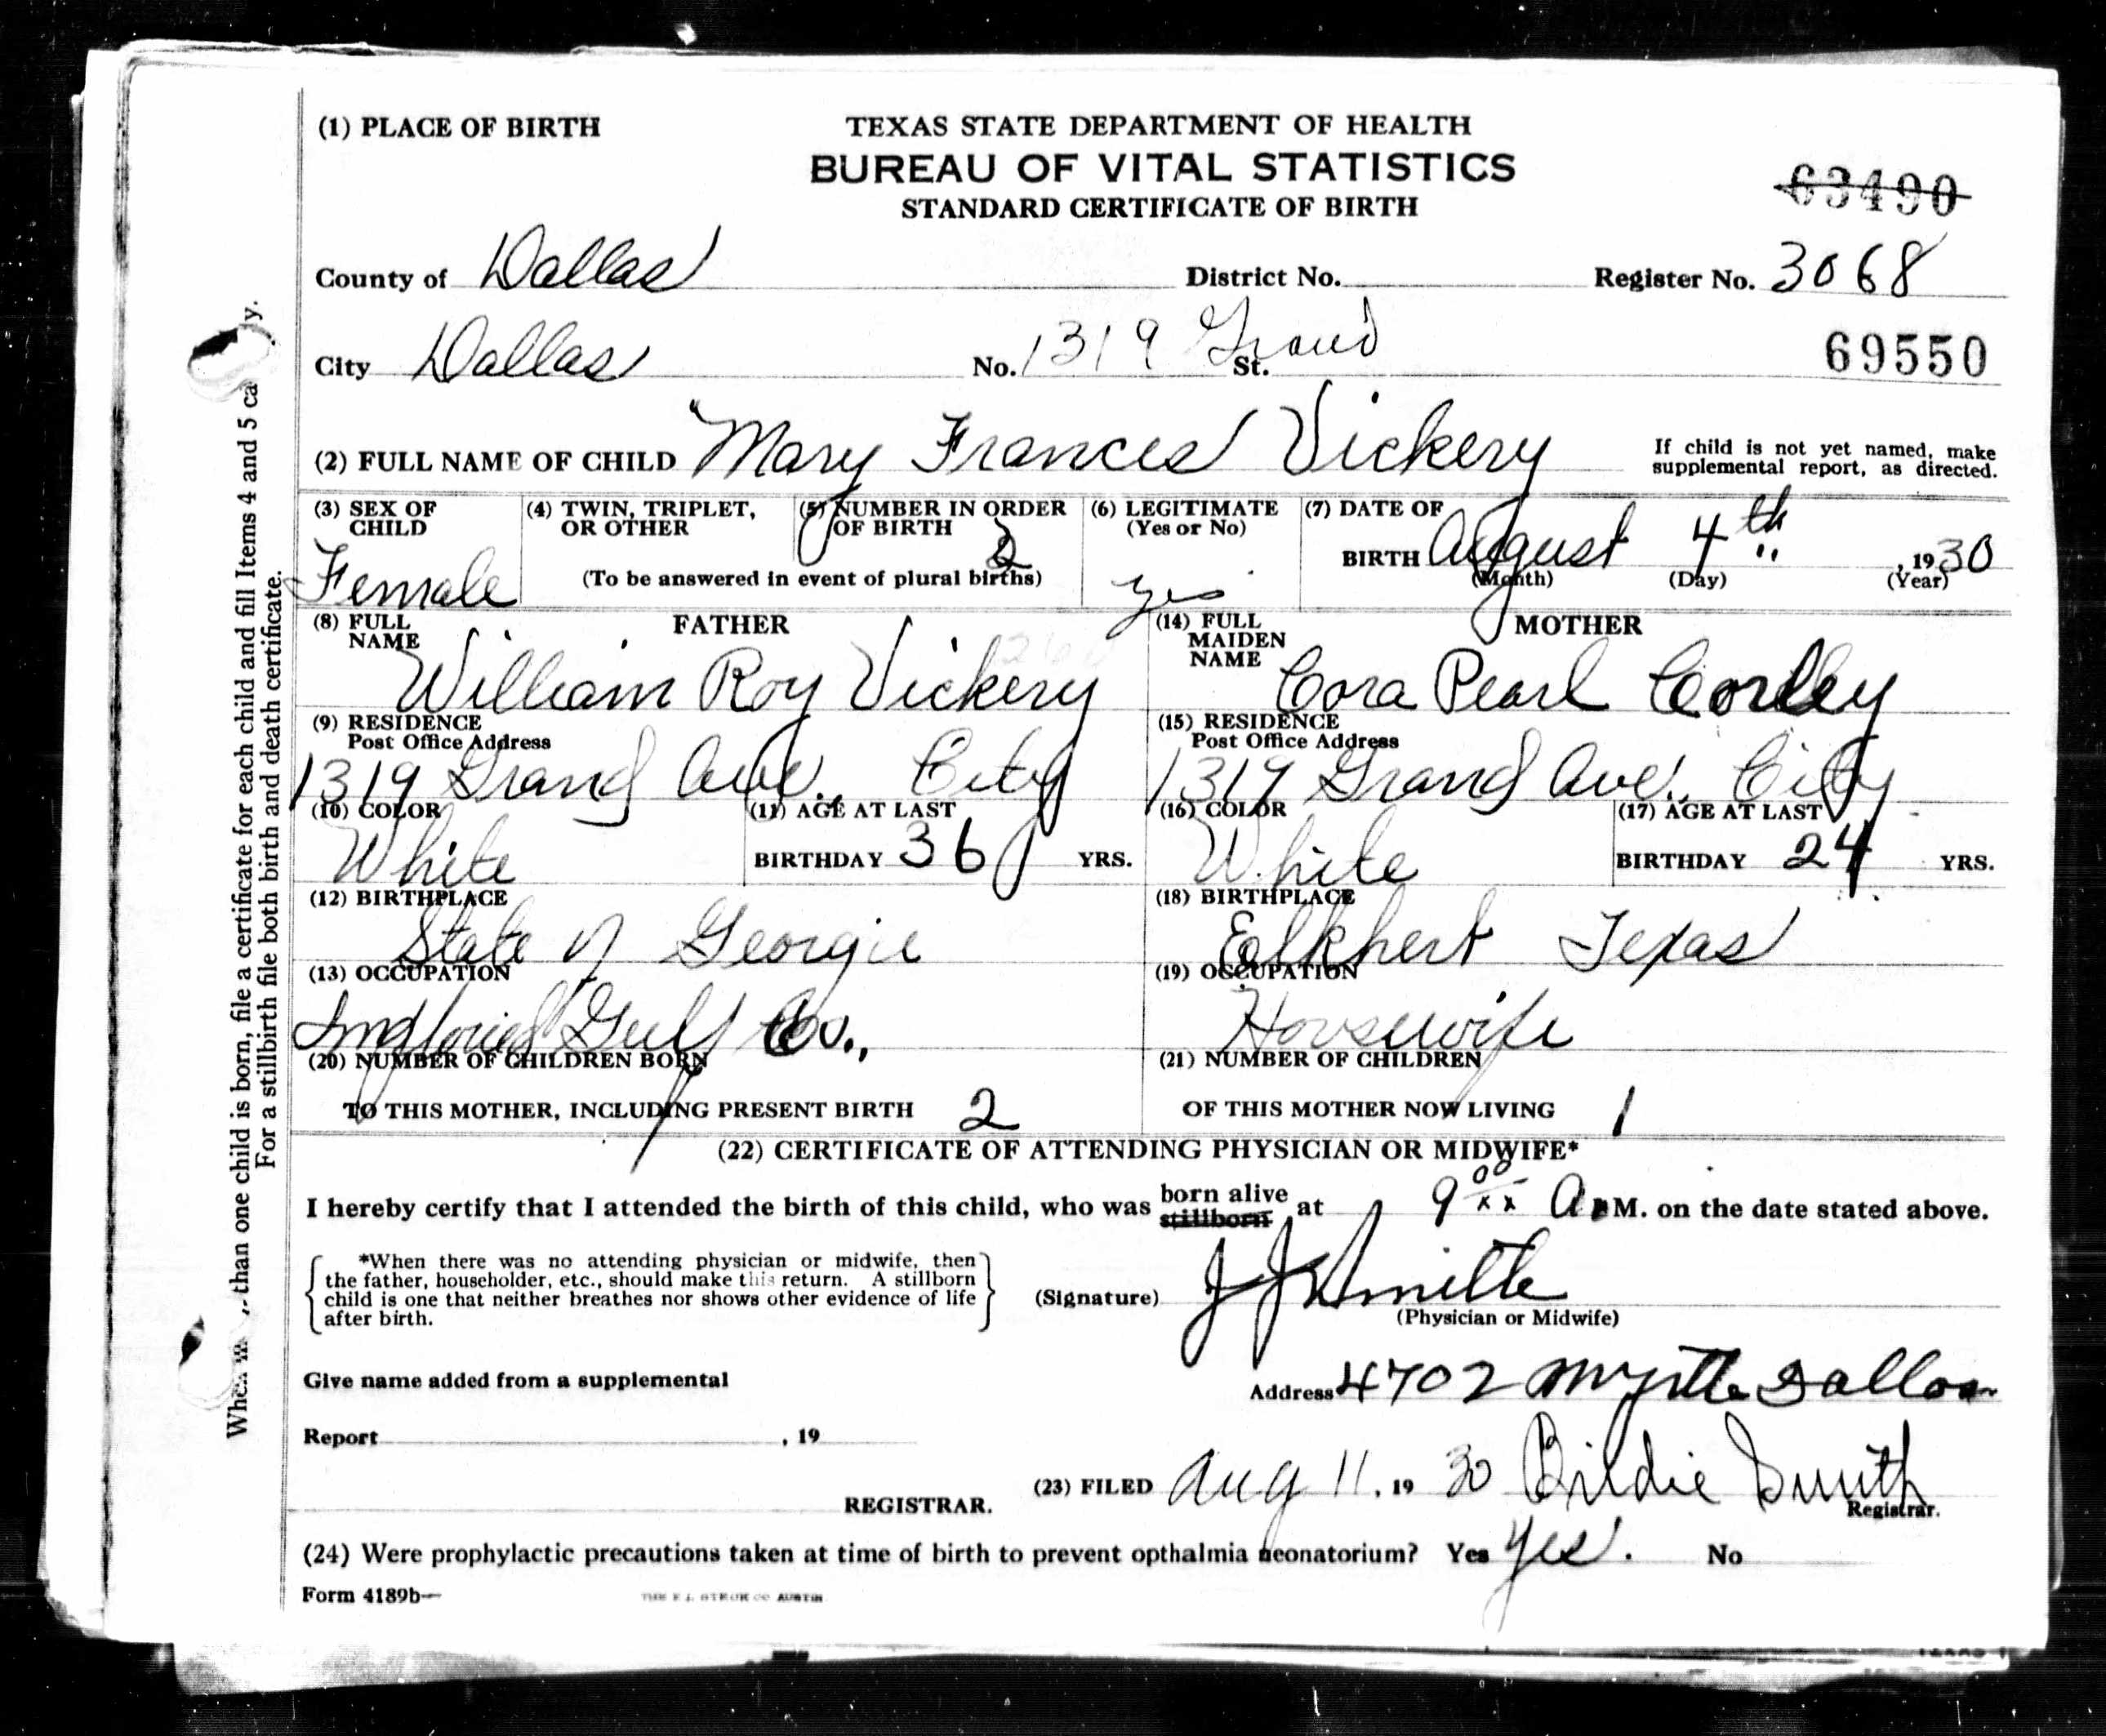 (1) PLACE OF BIRTH
TEXAS STATE DEPARTMENT OF HEALTH
BUREAU OF VITAL STATISTICS
STANDARD CERTIFICATE OF BIRTH
63490
County of Dallas District No. Register No. 3068
City Dallas No. 1319 Grand St.
69550
(2) FULL NAME OF CHILD Mary Frances Vickery
If child is not yet named, make
supplemental report, as directed.
(3) SEX OF CHILD Female
(4) TWIN, TRIPLET, OR OTHER
(5) NUMBER IN ORDER OF BIRTH 2
(To be answered in event of plural births)
(6) LEGITIMATE (Yes or No) yes
(7) DATE OF BIRTH August 4th , 1930
(Month) (Day) (Year)
FATHER
(8) FULL NAME
William Roy Vickery
(9) RESIDENCE
Post Office Address
1319 Grand Ave., City
(10) COLOR
White
(11) AGE AT LAST
BIRTHDAY 36 YRS.
(12) BIRTHPLACE
State of Georgie
(13) OCCUPATION
Gulf Co.,
MOTHER
(14) FULL MAIDEN NAME
Cora Pearl Corley
(15) RESIDENCE
Post Office Address
1319 Grand Ave. City
(16) COLOR
White
(17) AGE AT LAST
BIRTHDAY 24 YRS.
(18) BIRTHPLACE
Elkhert Texas
(19) OCCUPATION
Housewife
(20) NUMBER OF CHILDREN BORN
TO THIS MOTHER, INCLUDING PRESENT BIRTH 2
(21) NUMBER OF CHILDREN
OF THIS MOTHER NOW LIVING 1
(22) CERTIFICATE OF ATTENDING PHYSICIAN OR MIDWIFE*
I hereby certify that I attended the birth of this child, who was born alive stillborn at 9 00 xx A.M. on the date stated above.
*When there was no attending physician or midwife, then
the father, householder, etc., should make this return. A stillborn
child is one that neither breathes nor shows other evidence of life
after birth.
(Signature) J J Smith
(Physician or Midwife)
Give name added from a supplemental
Address 4702 Myrtle Dallas
Report , 19
REGISTRAR.
(23) FILED Aug 11, 19 30 Birdie Smith
Registrar.
(24) Were prophylactic precautions taken at time of birth to prevent opthalmia neonatorium? Yes Yes. No
Form 4189b—
than one child is born, file a certificate for each child and fill Items 4 and 5
For a stillbirth file both birth and death certificate.